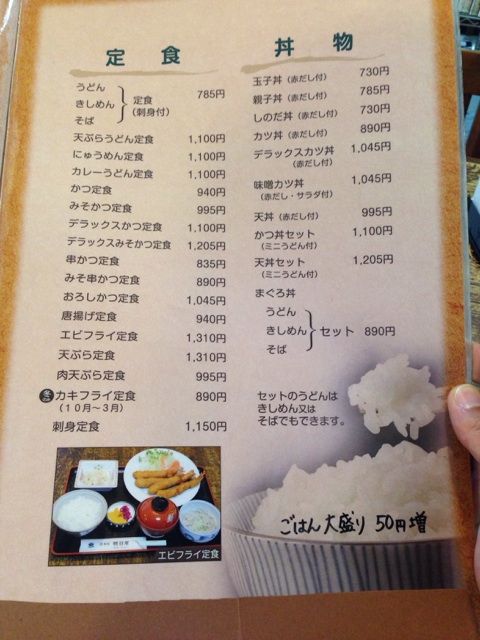 定食
うどん
きしめん
そば
定食
(刺身付)
785円
天ぷらうどん定食 1,100円
にゅうめん定食 1,100円
カレーうどん定食 1,100円
かつ定食 940円
みそかつ定食 995円
デラックスかつ定食 1,100円
デラックスみそかつ定食 1,205円
串かつ定食 835円
みそ串かつ定食 890円
おろしかつ定食 1,045円
唐揚げ定食 940円
エビフライ定食 1,310円
天ぷら定食 1,310円
肉天ぷら定食 995円
カキフライ定食 890円
(10月〜3月)
刺身定食 1,150円
エビフライ定食
丼物
玉子丼(赤だし付) 730円
親子丼(赤だし付) 785円
しのだ丼(赤だし付) 730円
カツ丼(赤だし付) 890円
デラックスカツ丼 1,045円
(赤だし付)
味噌カツ丼 1,045円
(赤だし・サラダ付)
天丼(赤だし付) 995円
かつ丼セット 1,100円
(ミニうどん付)
天丼セット 1,205円
(ミニうどん付)
まぐろ丼
うどん
きしめん
そば
セット 890円
セットのうどんは
きしめん又は
そばでもできます。
ごはん大盛り 50円増